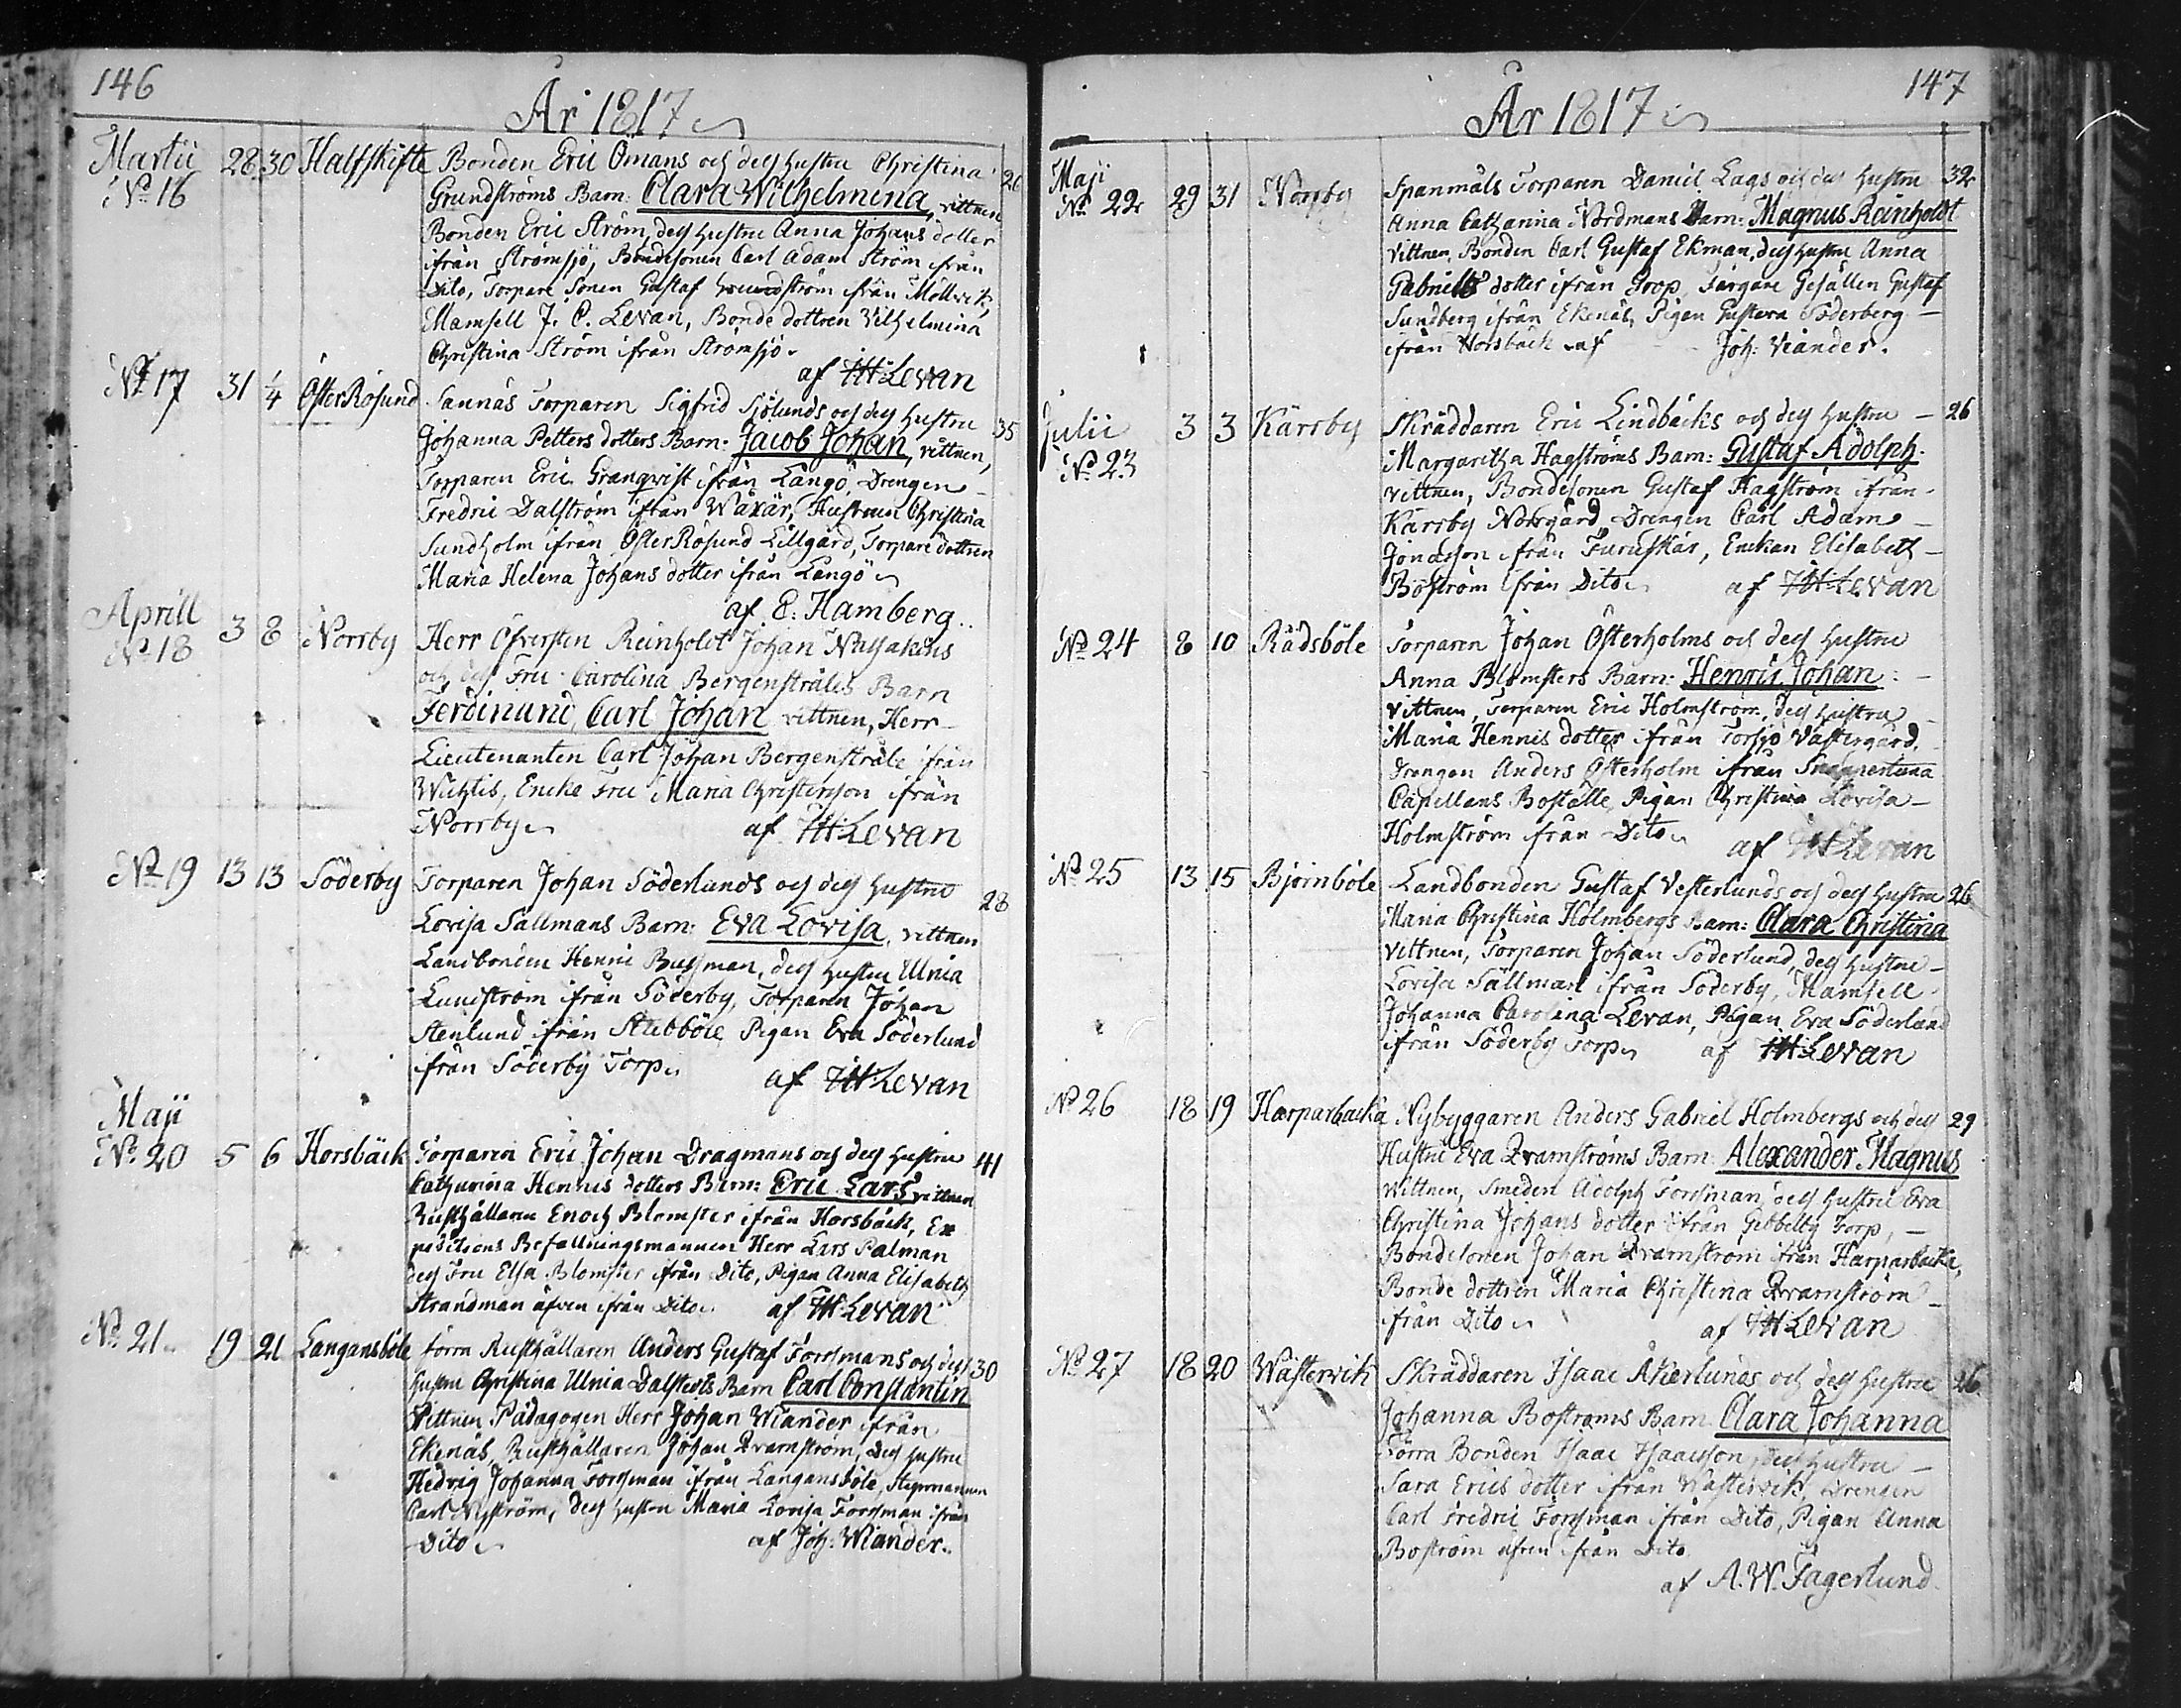 146
År 1817
Martii 28 30 Halfskifte Bonden Eric Ömans och dess hustru Christina 26
No 16 Grundströms Barn: Clara Wilhelmina, vittnen
Bonden Eric Ström, dess hustru Anna Johans dotter
ifrån Strömsjö, Bondesonen Carl Adam Ström ifrån
Dito, Torpare Sonen Gustaf Grundström ifrån Mällvik,
Mamsell J. C. Levan, Bonde dottren Vilhelmina
Christina Ström ifrån Strömsjö.
af IH Levan
No 17 31 1/4 ÖsterRösund Sannäs Torparen Sigfrid Sjölunds och dess hustru
Johanna Petters dotters Barn: Jacob Johan, vittnen, 35
Torparen Eric Granqvist ifrån Långö, Drengen
Fredric Dalström ifrån Waxär, Hustrun Christina
Sundholm ifrån ÖsterRösund Lillgård, Torpare dottren
Maria Helena Johans dotter ifrån Långö
af E. Hamberg
Aprill
No 18 3 8 Norrby Herr Öfversten Reinholdt Johan
och dess Fru Carolina Bergenstråles Barn
Ferdinand, Carl Johan vittnen, Herr
Lieutenanten Carl Johan Bergenstråle ifrån
Wichtis, Enke Fru Maria Christersson ifrån
Norrby
af IH Levan
No 19 13 13 Söderby Torparen Johan Söderlunds och dess hustru 28
Lovisa Sallmans Barn: Eva Lovisa, vittnen
Landbonden Henric Bussman, dess hustru Ulrica
Lundström ifrån Söderby, Torparen Johan
Stenlund ifrån Stubböle Pigan Eva Söderlund
ifrån Söderby Torp
af IH Levan
Maji
No 20 5 6 Horsbäck Torparen Eric Johan Dragmans och dess hustru 41
Catharina Henrics dotters Barn: Eric Lars vittnen
Rusthållaren Enoch Blomster ifrån Horsbäck, Ex
peditions Befallningsmannen Herr Lars Palman
dess Fru Elsa Blomster ifrån Dito, Pigan Anna Elisabeth
Strandman äfven ifrån Dito
af IH Levan
No 21 19 21 Langansböle förra Rusthållaren Anders Gustaf Forssmans och dess 30
hustru Christina Ulrica Dalstedts Barn Carl Constantin
Vittnen Pädagogen Herr Johan Wiander ifrån
Ekenäs, Rusthållaren Johan Qvarnström, dess hustru
Hedvig Johanna Forssman ifrån Langansböle, Styrmannen
Carl Nyström, dess hustru Maria Lovisa Forssman ifrån
Dito
af Joh: Wiander.
147
År 1817
Maji
No 22 29 31 Norrby Spanmåls Torparen Daniel Lags och dess hustru 32
Anna Catharina Nordmans Barn: Magnus Reinholdt
vittnen, Bonden Carl Gustaf Ekman, dess hustru Anna
Gabriels dotter ifrån Torp, Färgare Gesällen Gustaf
Sundberg ifrån Ekenäs, Pigan Gustava Söderberg
ifrån Horsbäck af Joh: Viander.
Julii 3 3 Kärrby Skräddaren Eric Lindbäcks och dess hustru 26
No 23 Margaretha Hagströms Barn: Gustaf Adolph.
vittnen, Bondesonen Gustaf Hagström ifrån
Kärrby Norrgård, Drengen Carl Adam
Jonasson ifrån Furuskär, Enckan Elisabeth
Boström ifrån Dito
af IH Levan
No 24 8 10 Rådsböle Torparen Johan Österholms och dess hustru
Anna Blomsters Barn: Henric Johan:
Vittnen, Torparen Eric Holmström, dess hustru
Maria Henrics dotter ifrån Torsjö Västergård,
Drengen Anders Österholm ifrån Snappertuna
Capellans Boställe, Pigan Christina Lovisa
Holmström ifrån Dito
af IH Levan
No 25 13 15 Björnböle Landbonden Gustaf Vesterlunds och dess hustru 26
Maria Christina Holmbergs Barn: Clara Christina
vittnen, Torparen Johan Söderlund, dess hustru
Lovisa Sällman ifrån Söderby, Mamsell
Johanna Carolina Levan, Pigan Eva Söderlund
ifrån Söderby Torp
af IH Levan
No 26 18 19 Harparbacka Nybyggaren Anders Gabriel Holmbergs och dess 29
Hustru Eva Qvarnströms Barn Alexander Magnus
Wittnen, Smeden Adolph Forssman dess hustru Eva
Christina Johans dotter ifrån Gebbelby Torp,
Bondesonen Johan Qvarnström ifrån Harparbacka,
Bonde dottren Maria Christina Qvarnström
ifrån Dito
af IH Levan
No 27 18 20 Wästervik Skräddaren Isaac Åkerlunds och dess hustru 26
Johanna Boströms Barn Clara Johanna
Förra Bonden Isaac Isaacsson, dess hustru
Sara Erics dotter ifrån Wästervik, Drengen
Carl Fredric Forssman ifrån Dito, Pigan Anna
Boström äfven ifrån Dito
af A. W. Fagerlund.